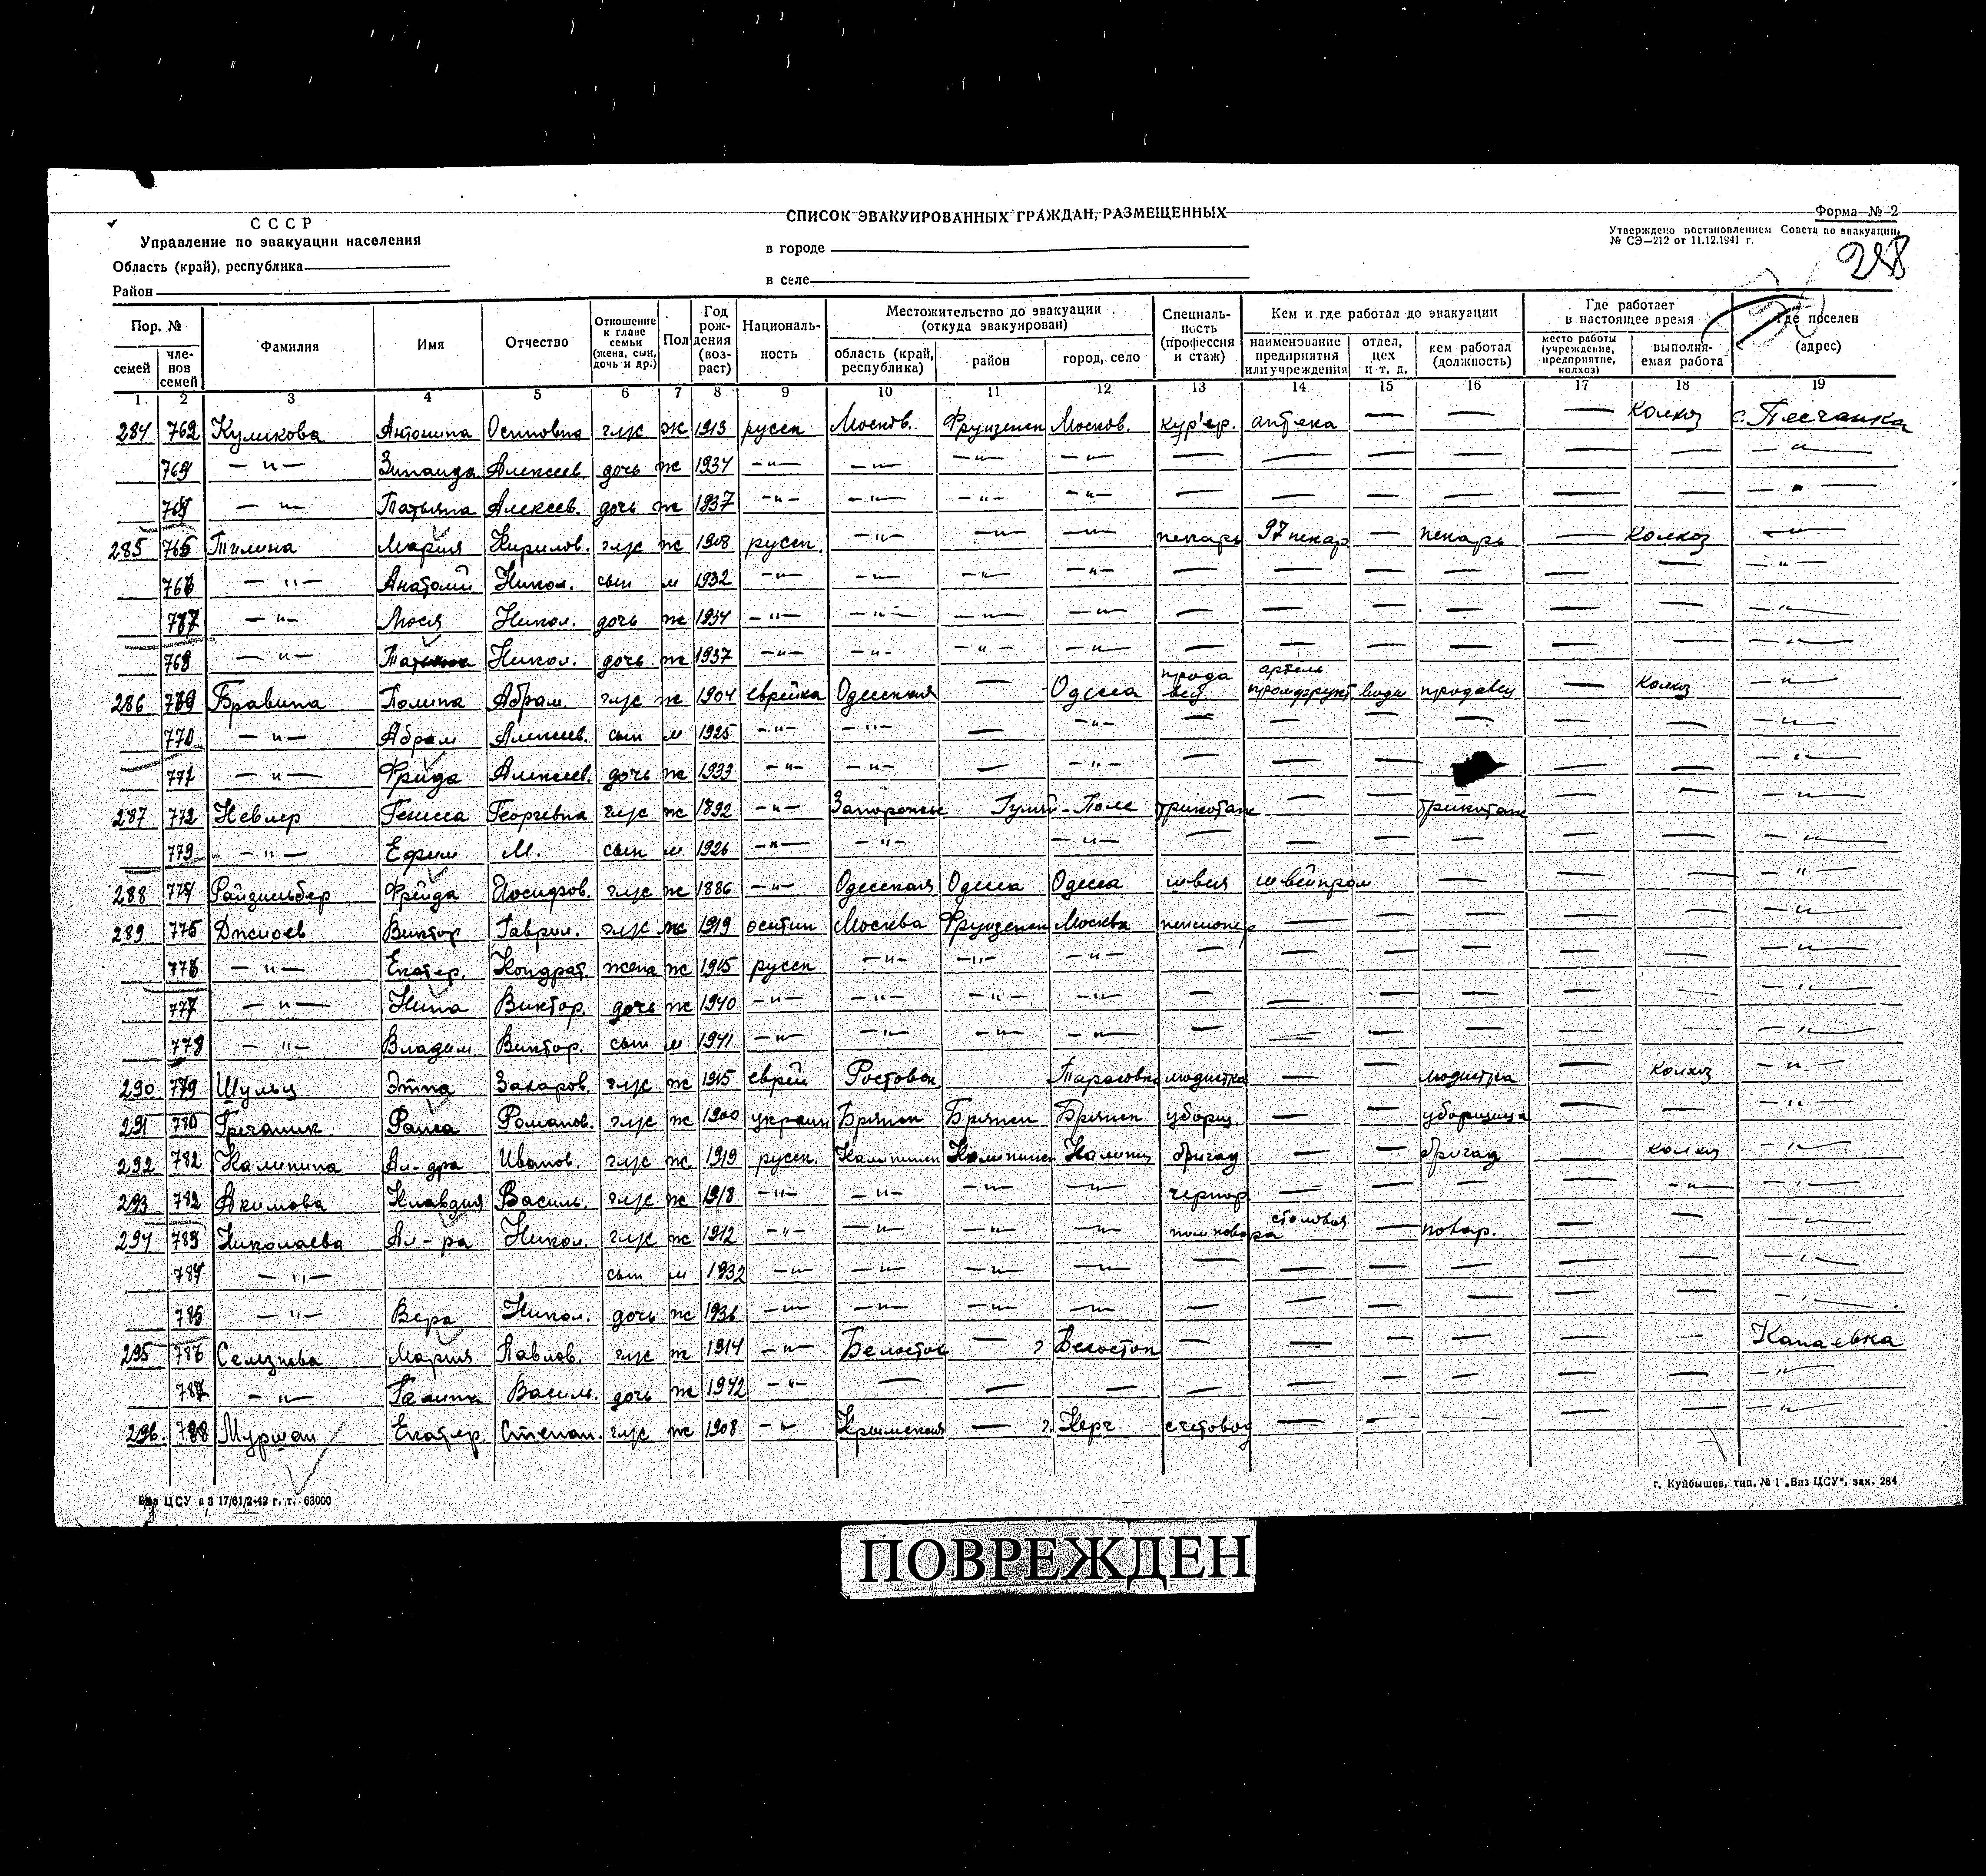 СССР
Управление по эвакуации населения
Область (край), республика
Район
СПИСОК ЭВАКУИРОВАННЫХ ГРАЖДАН, РАЗМЕЩЕННЫХ
в городе
в селе
Форма № 2
Утверждено постановлением Совета по эвакуации,
№ СЭ—212 от 11.12.1941 г.
Пор. № семей членов семей Фамилия Имя Отчество Отношение к главе семьи (жена, сын, дочь и др.) Пол Год рождения (возраст) Националь-ность Местожительство до эвакуации (откуда эвакуирован) область (край, республика) район город, село Специаль-ность (профессия и стаж) Кем и где работал до эвакуации наименование предприятия или учреждения отдел, цех и т. д. кем работал (должность) Где работает в настоящее время место работы (учреждение, предприятие, колхоз) выполня-емая работа Где поселен (адрес)
1 2 3 4 5 6 7 8 9 10 11 12 13 14 15 16 17 18 19
284 Куликова Антонина Осиповна глс ж 1913 русск Москов. Фрунзенск Москов. кур'ер. аптека — — — колхоз с. Песчанка
— " — Зинаида Алексеев. дочь ж 1934 — " — — " — — " — — " — — — — — — — — " —
— " — Татьяна Алексеев. дочь ж 1937 — " — — " — — " — — " — — — — — — —
285 765 Тилина Мария Кирилов. глс ж 1908 русск. — " — — " — — " — пекарь 97 пекар — пекарь — колхоз — " —
766 — " — Анатолий Никол. сын м 1932 — " — — " — — " — — " — — — — — — — — " —
— " — Люся Никол. дочь ж 1934 — " — — " — — " — — " — — — — — — — — " —
768 — " — Никол. дочь ж 1937 — " — — " — — " — — " — — — — — — — — " —
286 Бравина Полина Абрам. глс ж 1904 еврейка Одесская — Одесса продавец артель воды продавец — колхоз — " —
770 — " — Абрам Алексеев. сын м 1925 — " — — " — — — " — — — — — — — — " —
771 — " — Фрида Алексеев. дочь ж 1933 — " — — " — — — " — — — — — — — " —
287 772 Невлер Георгевна глс ж 1892 — " — Запорожье Гуляй-Поле трикотаж — — трикотаж — — — " —
773 — " — Ефим М. сын м 1926 — " — — " — — " — — — — — — — — " —
288 774 Райзильбер Фрейда Иосифов. глс ж 1886 — " — Одесская Одесса Одесса швея швейпром — — — — " —
289 775 Джиоев Виктор Гаврил. глс ж 1919 осетин Москва Фрунзенск Москва пенсионер — — — — — — " —
776 — " — Екатер. Кондрат. жена ж 1915 русск — " — — " — — " — — — — — — — — " —
777 — " — Нина Виктор. дочь ж 1940 — " — — " — — " — — " — — — — — — — — " —
778 — " — Владим. Виктор. сын м 1941 — " — — " — — " — — " — — — — — — — — " —
290 779 Шульц Этта Захаров. глс ж 1915 еврей Ростовск Тарасовка модистка — — модистка — колхоз — " —
291 780 Гречаник Раиса Романов. глс ж 1900 украин Брянск Брянск Брянск уборщ. — — уборщица — — — " —
292 Калинина Ал-дра Иванов. глс ж 1919 русск. Калининск Калининск Калинин бригад — — бригад — колхоз — " —
293 782 Акимова Клавдия Василь. глс ж 1918 — " — — " — — " — — " — чернор. — — — — — " — — " —
294 783 Николаева Ал-ра Никол. глс ж 1912 — " — — " — — " — — " — пом повара столовая — повар. — — — " —
784 — " — сын м 1932 — " — — " — — " — — " — — — — — — — — " —
785 — " — Вера Никол. дочь ж 1936 — " — — " — — " — — " — — — — — — — — " —
295 786 Селезнева Мария Павлов. глс ж 1914 — " — Белосток — г Белосток — — — — — — Капаевка
787 — " — Галина Василь. дочь ж 1942 — " — — — — — — — — — — — " —
296. 788 Муршан Екатер. Степан. глс ж 1908 — " — Крымская — г. Керч счетовод — — — — — — " —
г. Куйбышев, тип. № 1 „Вяз ЦСУ", зак. 284
ПОВРЕЖДЕН